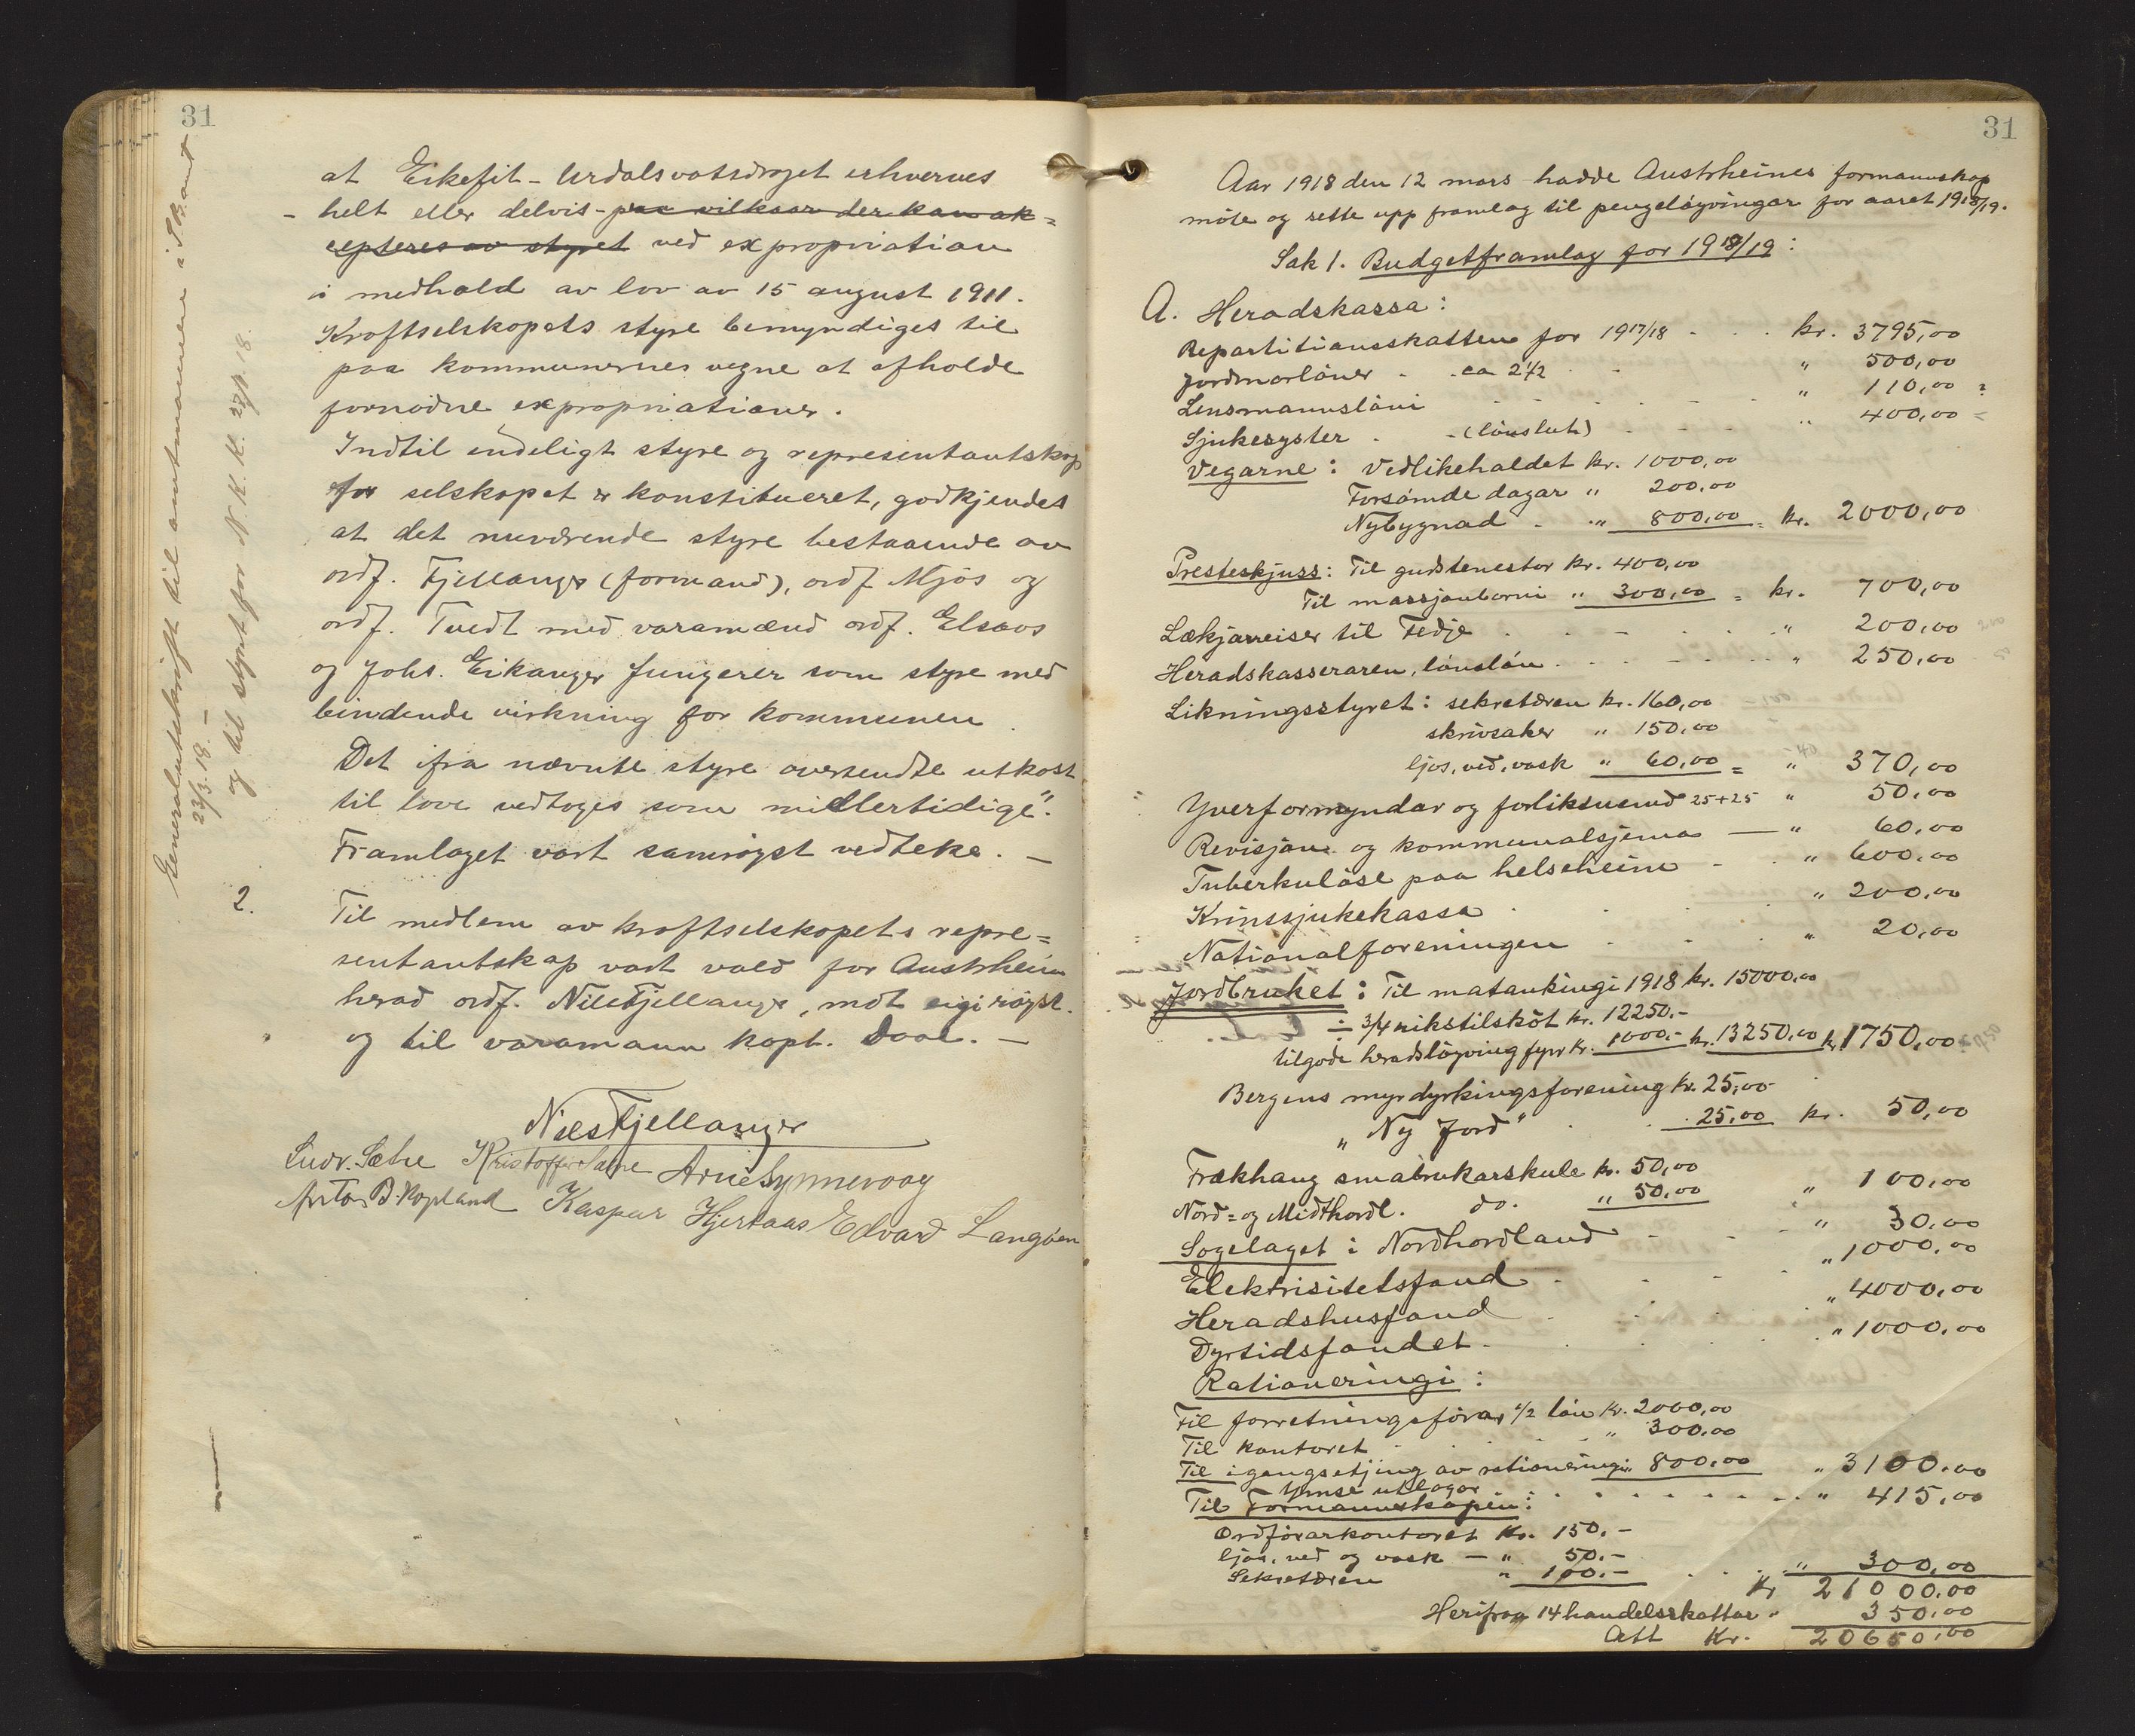 31
at Eikefit-Urdalsvatsdraget erhverves
- helt eller delvis - paa vilkaar der kan ak=
cepteres av styret ved expropriation
i medhold av lov av 15 august 1911.
Kraftselskapets styre bemyndiges til
paa kommunernes vegne at afholde
fornødne expropriationer.
Indtil endeligt styre og representantskap
for selskapet er konstitueret, godkjendes
at det nuværende styre bestaaende av
ordf. Fjellanger (formand), ordf Mjøs og
ordf. Tvedt med varamænd ordf. Elsaas
og Johs. Eikanger fungerer som styre med
bindende virkning for kommunen.
Det ifra nævnte styre oversendte utkast
til love vedtages som midlertidige".
Framlaget vart samrøyst vedteke. -
2.
Til medlem av kraftselskapets repre=
sentantskap vart vald for Austrheim
herad ordf. Nils Fjellanger, mot eigi røyst.
og til varamann kapt. Daae. -
Nils Fjellanger
Ludv. Sætre Kristoffer Sætre Arne Synnevaag
Anton B. Kopland Kaspar Hjertaas Edvard Langøen
Generalutskrift til amtmannen i S. B. amt
23/3. 18. -
og til styret for N. K. K. 27/3. 18.
31
Aar 1918 den 12 mars hadde Austrheims formannskap
møte og sette upp framlag til pengeløyvingar for aaret 1918/19.
Sak 1. Budgetframlag for 1918/19:
A. Heradskassa:
Repartitionsskatten for 1917/18 - - - kr. 3795,00
Jordmorløner - - ca 2 1/2 - - " 500,00
Lensmannsløni - - - - " 110,00
Sjukesyster - - (lønslut) - - - " 400,00
Vegarne: Vedlikehaldet kr. 1000,00
Forsømde dagar " 200,00
Nybygnad - " 800,00 = kr. 2000,00
Presteskjuss: Til gudstenestor kr. 400,00
Til massjonborni " 300,00 = kr. 700,00
Lækjarreiser til Fedje - - - - " 200,00
Heradskasseraren, lønsløn - - - - " 250,00
Likningsstyret: sekretæren kr. 160,00
skrivsaker " 150,00
ljos, ved, vask " 60,00 = " 370,00
Yverformyndar og forliksmend 25+25 " 50,00
Revisjon og kommunalsjema - " 60,00
Tuberkuløse paa helseheim - " 600,00
Krinssjukekassa - - - " 200,00
Nationalforeningen - - - " 20,00
Jordbruket: Til mataukingi 1918 kr. 15000,00
÷ 3/4 rikstilskot kr. 12250.-
tilgode heradsløyving fyrr kr. 1000.- kr. 13250,00 kr. 1750,00
Bergens myrdyrkingsforening kr. 25,00
" Ny Jord" - - 25,00 kr. 50,00
Frækhaug smabrukarskule kr. 50,00
Nord= og Midthordl. do. " 50,00 " 100,00
Sogelaget i Nordhordland - - - " 30,00
Elektrisitetsfond - - - " 1000,00
Heradshusfond - - - " 4000,00
Dyrtidsfondet - - - " 1000,00
Rationeringi:
Til forretningsførar 1/2 løn kr. 2000,00
Til kontoret - - - " 300,00
Til igangsetjing av rationeringi " 800,00 " 3100,00
Ymse utlagor - - - - - " 415,00
Til Formannskapen:
Ordførarkontoret kr. 150.-
ljos, ved og vask - " 50.-
Sekretæren " 100.- - - " 300,00
Kr 21000,00
Herifraa 14 handelsskattar " 350,00
Att Kr. 20650,00